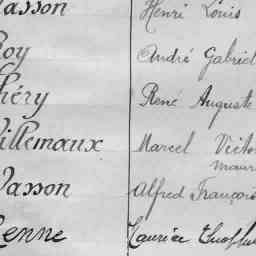 asson Henri Louis
oy André Gabriel
héry René Auguste
illemaux Marcel Victo
Mauri
asson Alfred François
enne Maurice